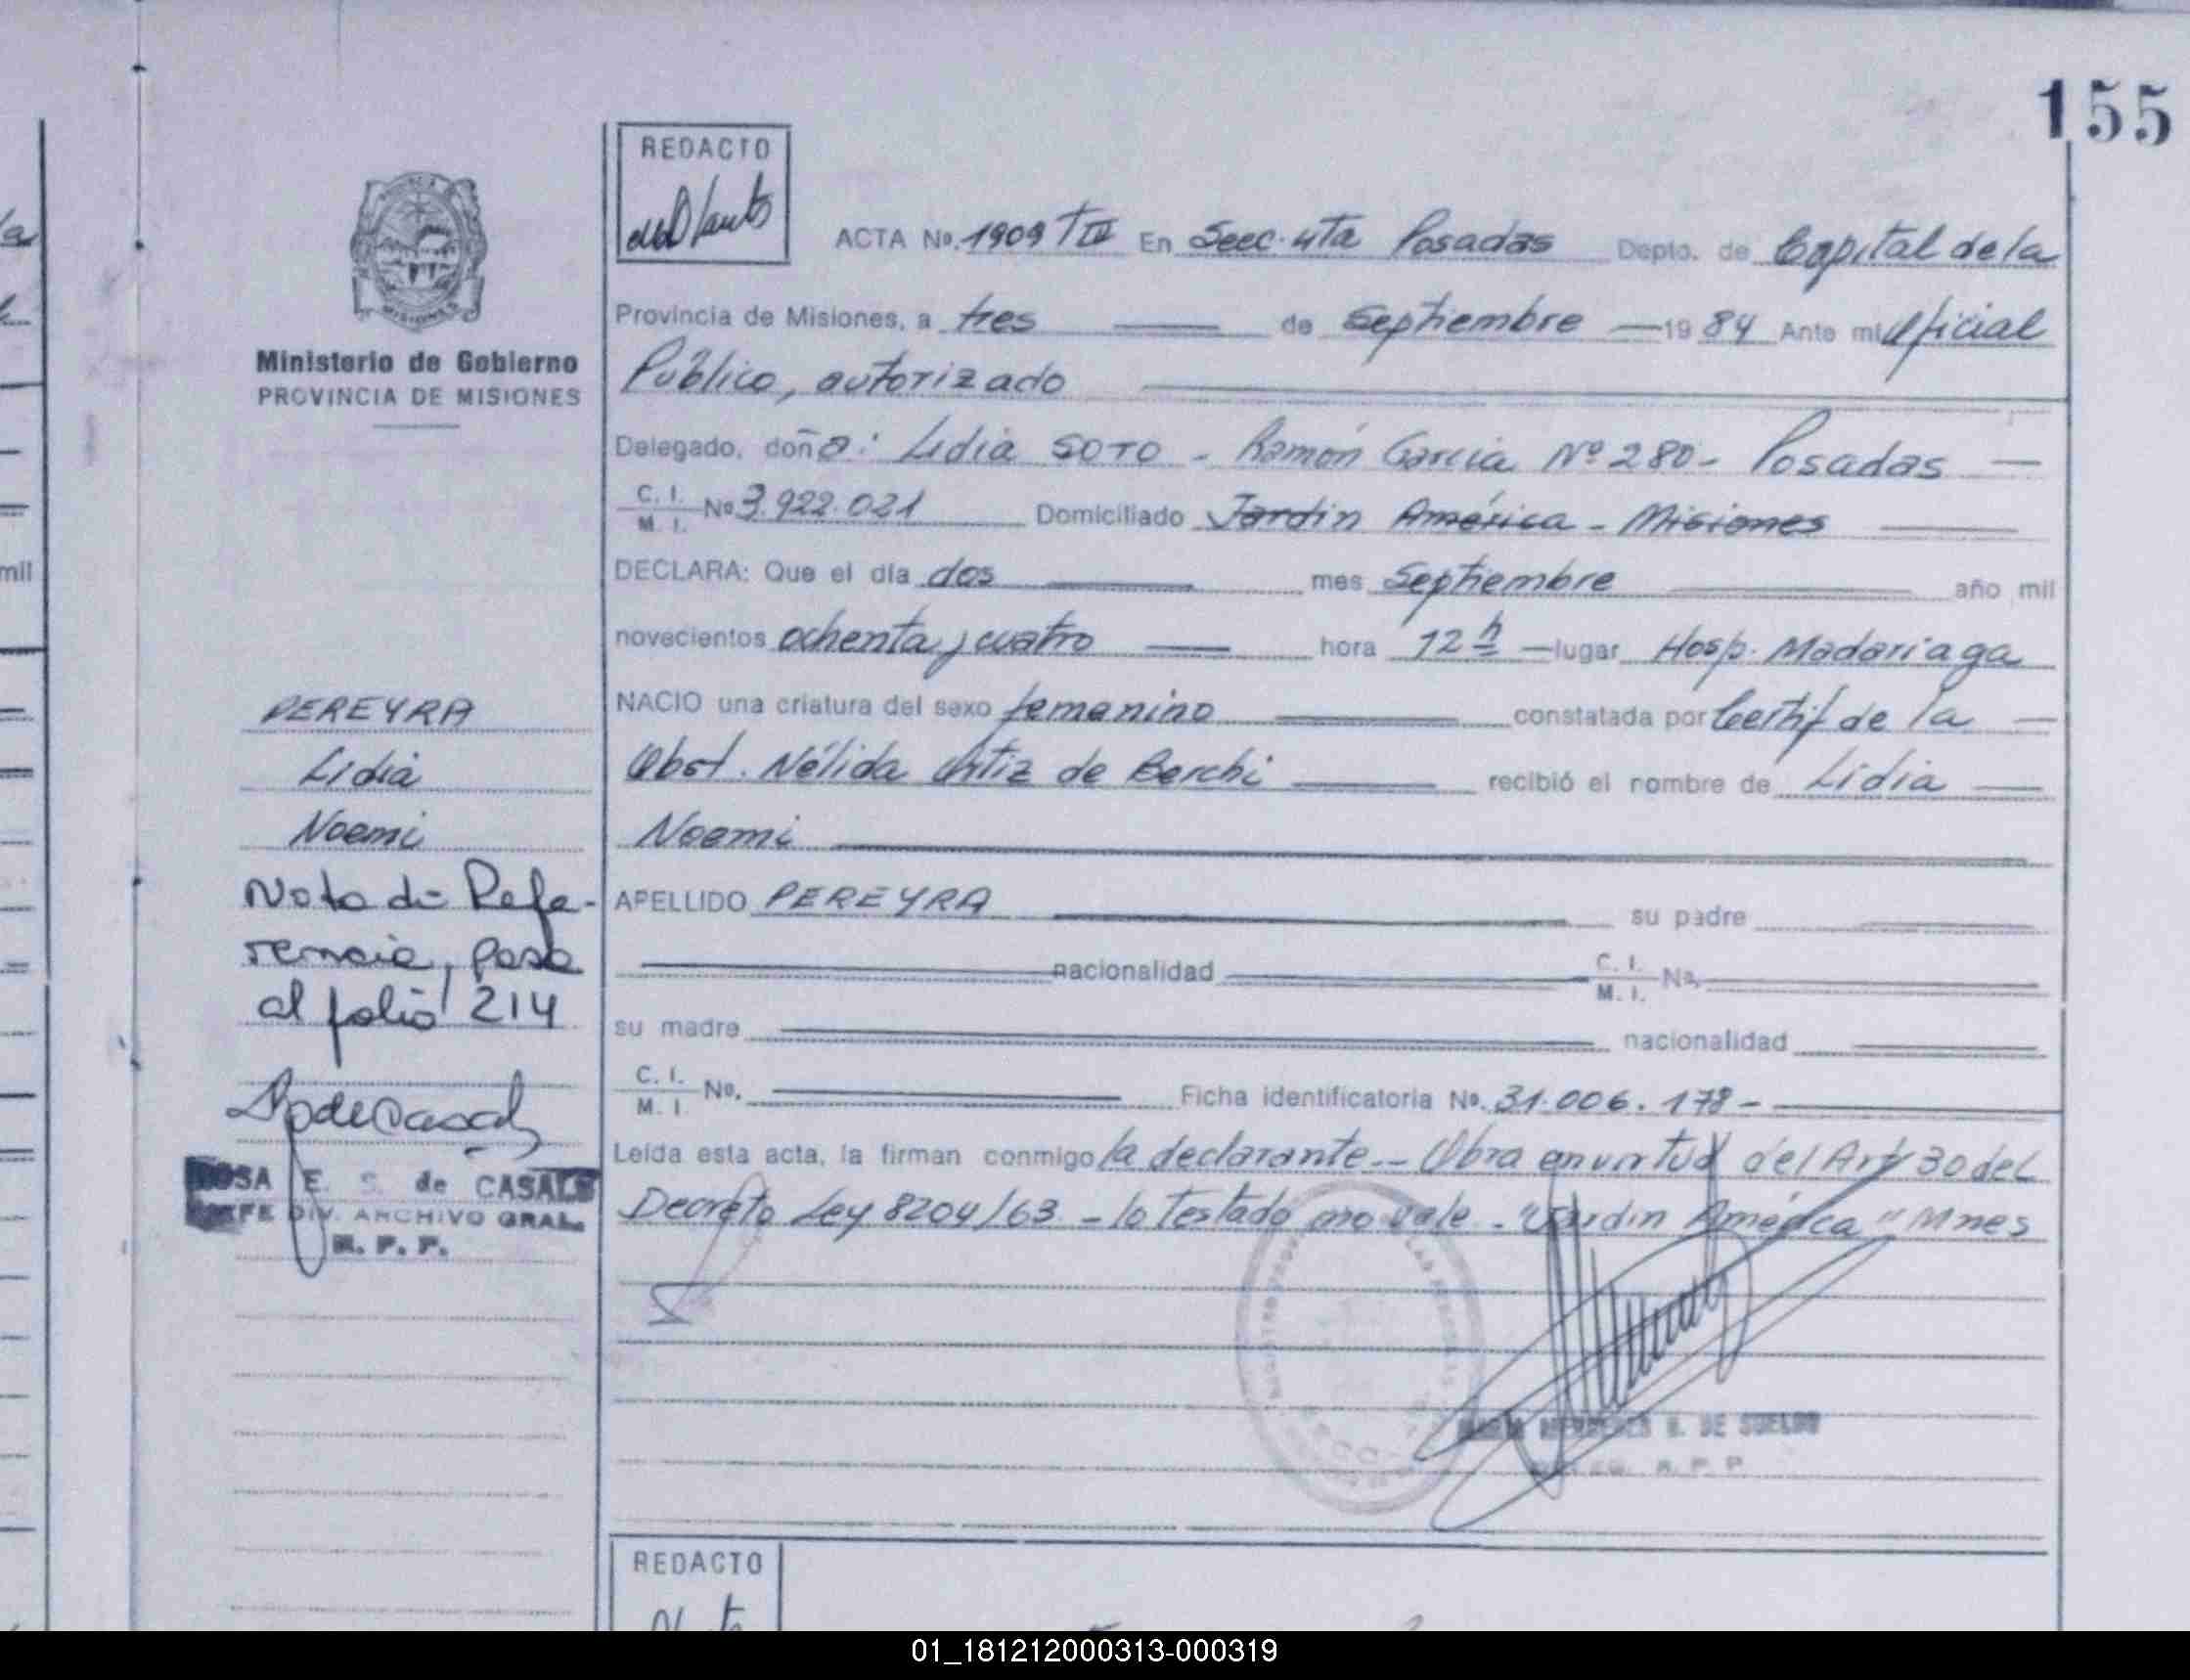 155
REDACTO
ACTA No. 1909 TIV En Secc. 4ta Posadas Depto. de Capital de la
Provincia de Misiones, a tres de Septiembre 1984 Ante mi Oficial
Público, autorizado
Delegado, doña: Lidia SOTO - Ramón García Nº 280 - Posadas
C. I. M. I. No 3.922.021 Domiciliado Jardin América - Misiones
DECLARA: Que el día dos mes Septiembre año mil
novecientos ochenta y cuatro hora 12 h lugar Hosp. Madariaga
NACIO una criatura del sexo femenino constatada por Certif de la
Obst. Nélida Ortiz de Berchi recibió el nombre de Lidia
Noemi
APELLIDO PEREYRA su padre
nacionalidad C. I. M. I. No.
su madre nacionalidad
C. I. M. I. No. Ficha identificatoria No. 31.006.178 -
Leída esta acta, la firman conmigo la declarante.- Obra en virtud del Art 30 del
Decreto Ley 8204/63 - lo testado no vale - "Jardin América" Mnes
DE SUELDO
R. P. P.
REDACTO
MISIONES
Ministerio de Gobierno
PROVINCIA DE MISIONES
PEREYRA
Lidia
Noemi
Nota de Refe-
rencia, pasa
al folio 214
ROSA E. S. de CASALS
JEFE DIV. ARCHIVO GRAL.
R. P. P.
mil
01_181212000313-000319